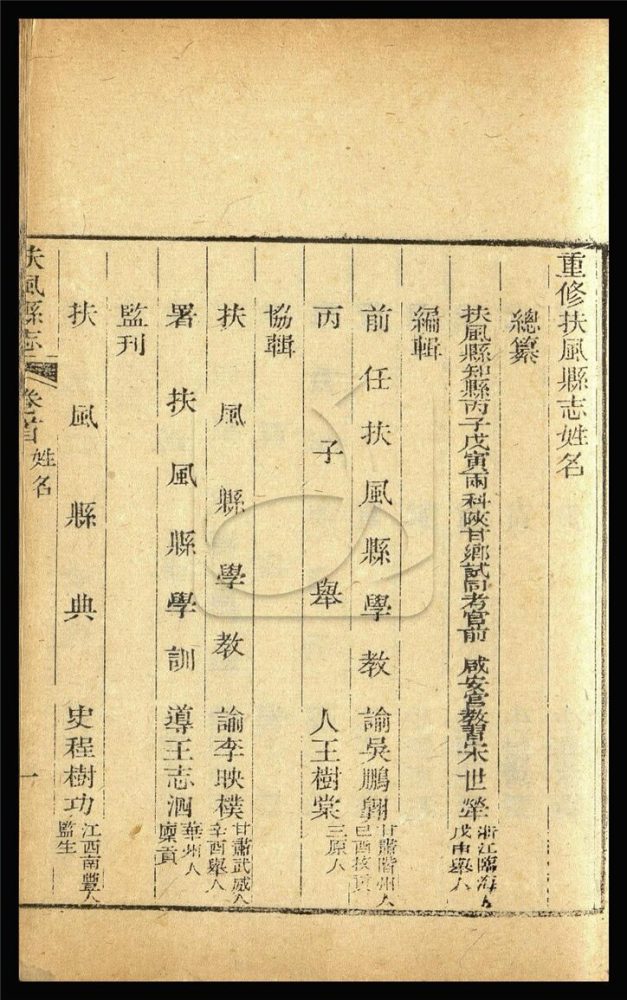 重修扶風縣志姓名
總纂
扶風縣知縣丙子戊寅兩科陝甘鄉試同考官前 咸安宮教習宋世犖 浙江臨海人 戊申舉人
編輯
前任扶風縣學教諭吳鵬翱 甘肅階州人 己酉拔貢
丙子舉人王樹棠 三原人
協輯
扶風縣學教諭李映樸 甘肅武威人 辛酉舉人
署扶風縣學訓導王志泗 華州人 廩貢
監刊
扶風縣典史程樹功 江西南豐人 監生
扶風縣志 卷首 姓名 一